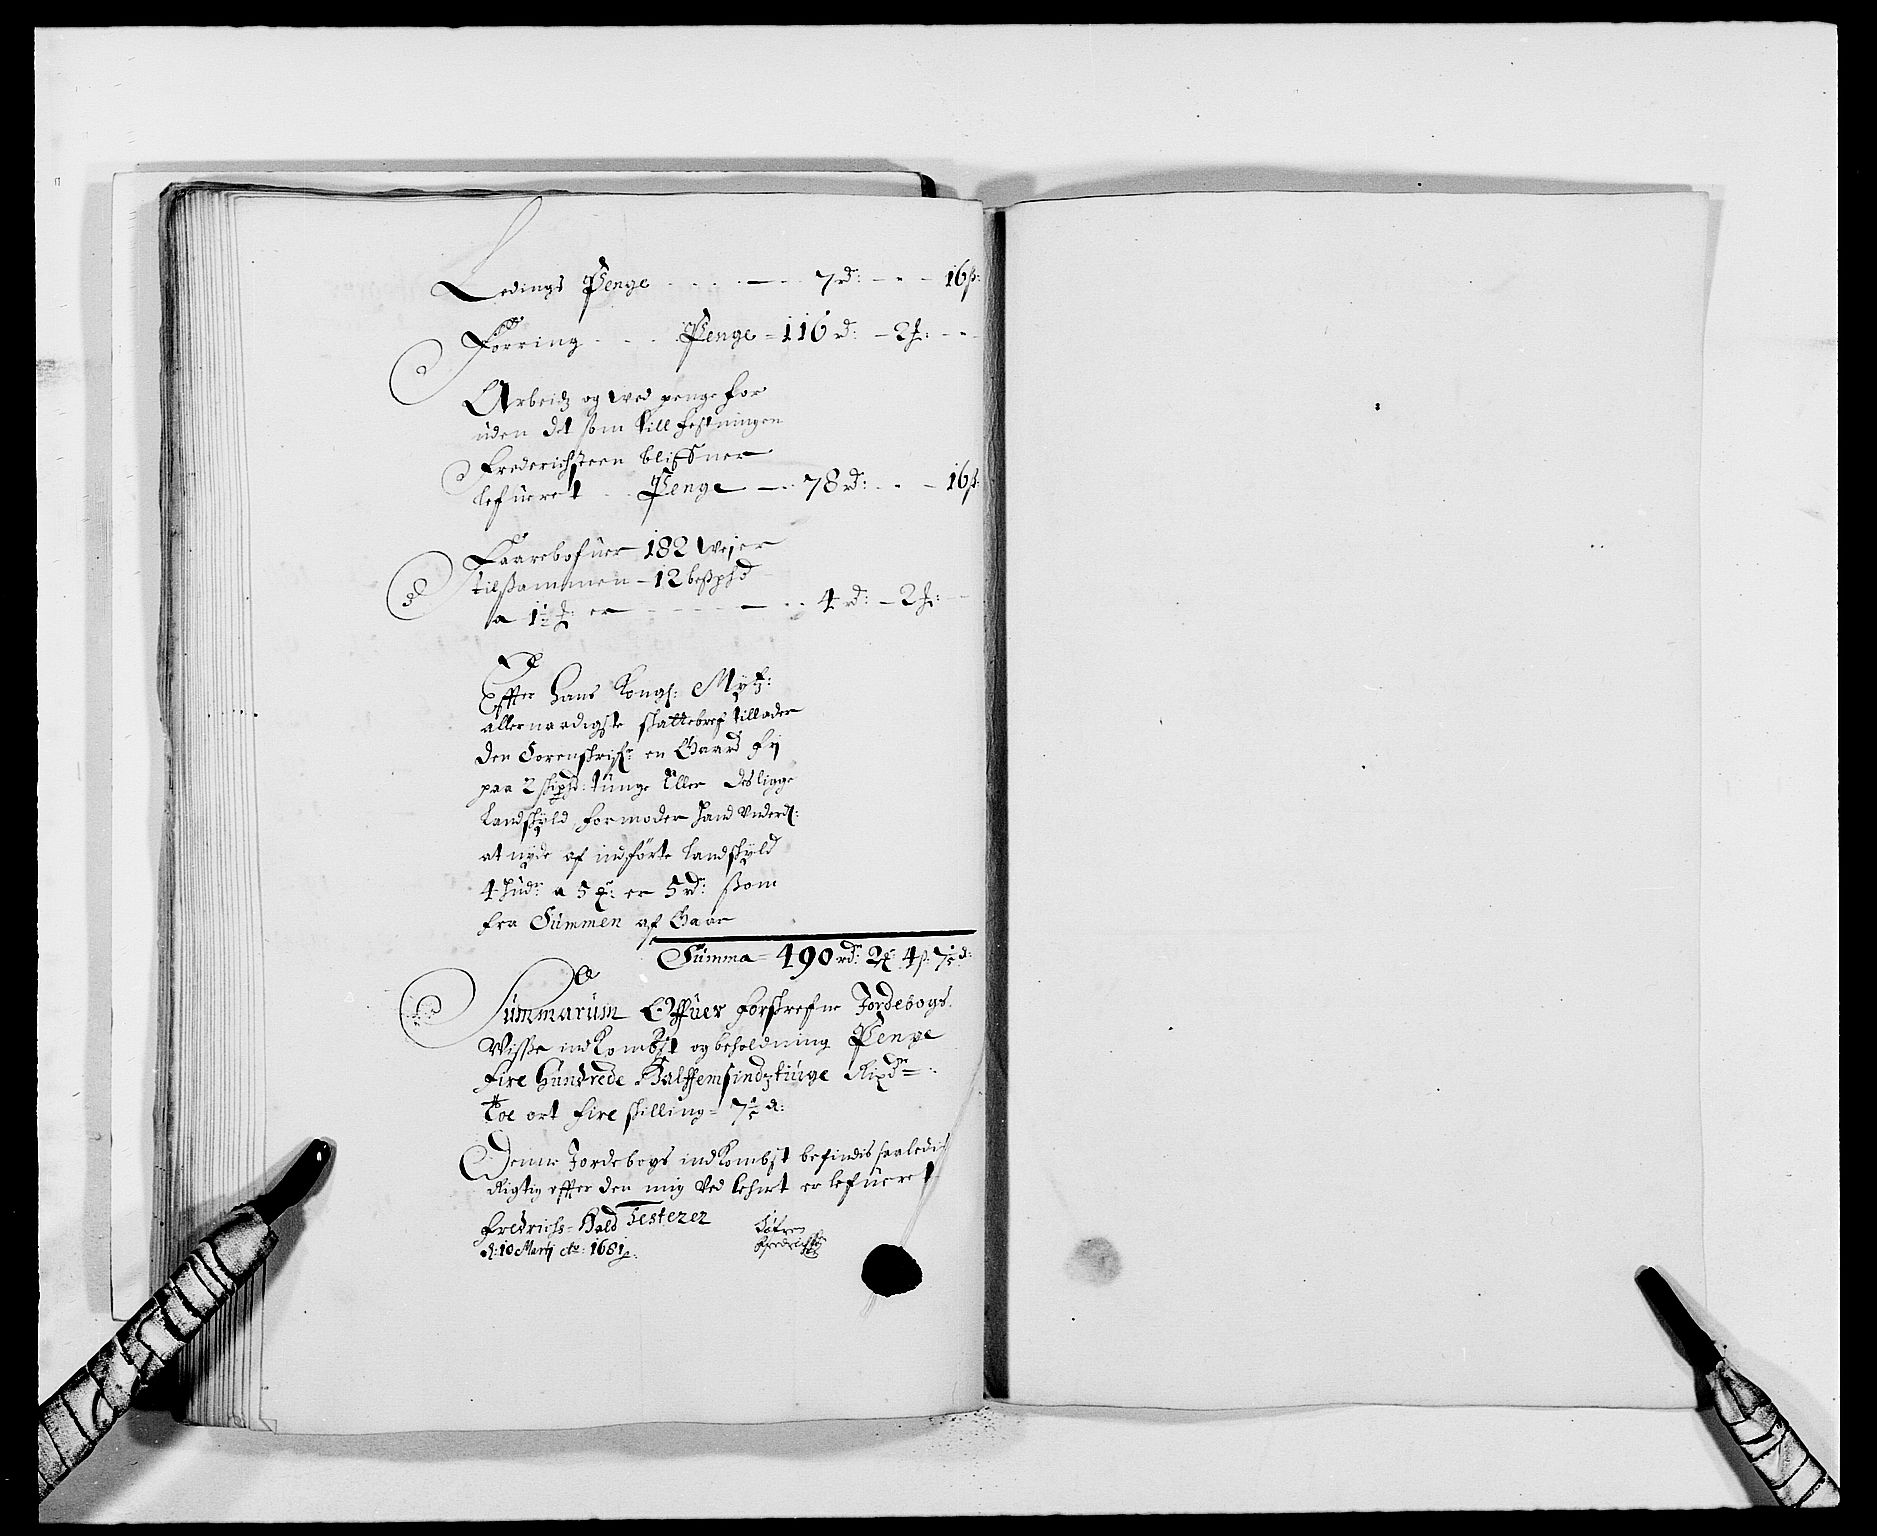 Ledings Penge - - - - 7 rd: - - - 16 ß:
Foering - - - Penge - 116 rd: - 2 f: - -
Arbeidz og wed penge for
uden det som till festningen
Frederichsteen blifver
lefueret - - Penge - - 78 rd: - - - 16 ß:
Faarebofuer 182 weier
tilsammen - 12 besßpd
a 1½ f: er - - - - - 4 rd: - 2 f: -
Effter Hans Kongl: Maytz:
allernaadigste skattebref tillader
den Sorenskrifr: en Gaard frj
paa 2 skippd: tunge eller des ligge
Landskyld formoder hand Underd:
at nyde af indførte landskyld
4 hudr: a 5 f: er 5 rd: ssom
fra Summen af Gaar
Summa - 490 rdr 2 f: 4 ß: 7 d:
Summarum Offuer forskrefne Jordebogs
Wisse indkombst og beholdning Penge
Fire Hundrede Halffemsindztiuge Rixdr -
Toe ort fire skilling - 7 d:
Denne Jordebogs indkombst befindis saaledis
Rigtig effter den mig ved lehnet er lefueret
Fredrichs-Hald
d: 10 Martj Ao: 1681